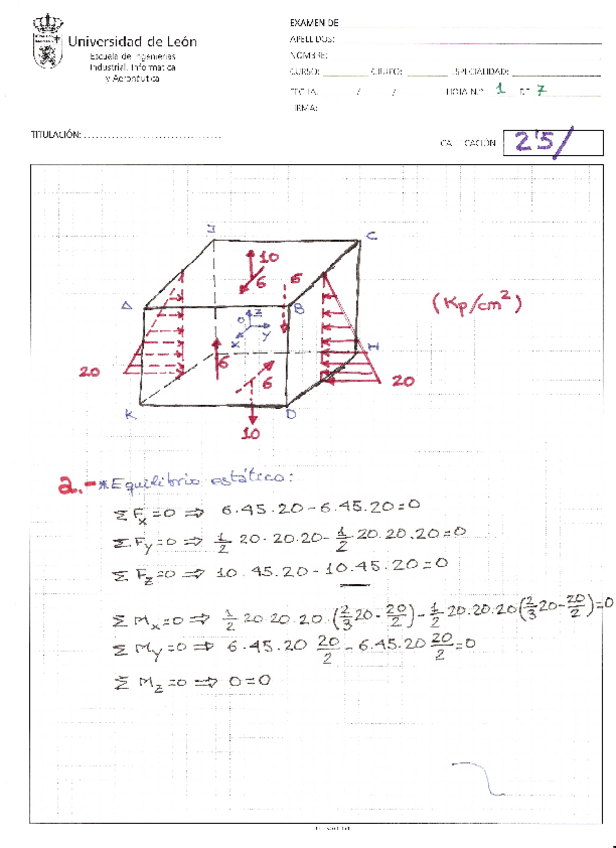 EXAMEN DE
Universidad de León
Escuela de Ingenierías
Industrial, Informática
y Aeronáutica
APELLIDOS:
NOMBRE:
CURSO: GRUPO: ESPECIALIDAD:
FECHA: / / HOJA N.º 1 DE 7
FIRMA:
TITULACIÓN:
CALIFICACIÓN 2'5/
J
C
10
6
6
A
B
(Kp/cm²)
z
O
x
y
H
6
20
6
20
K
D
10
a.- * Equilibrio estático:
Σ Fx = 0 ⇒ 6·45·20 - 6·45·20 = 0
Σ Fy = 0 ⇒ 1/2 20·20·20 - 1/2 20·20·20 = 0
Σ Fz = 0 ⇒ 10·45·20 - 10·45·20 = 0
Σ Mx = 0 ⇒ 1/2 20·20·20·(2/3 20 - 20/2) - 1/2 20·20·20 (2/3 20 - 20/2) = 0
Σ My = 0 ⇒ 6·45·20 20/2 - 6·45·20 20/2 = 0
Σ Mz = 0 ⇒ 0 = 0